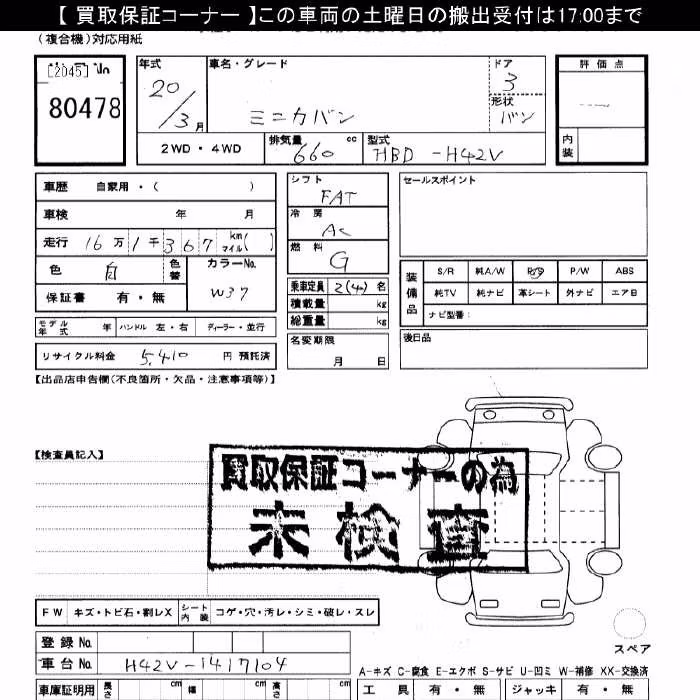 【 買取保証コーナー 】この車両の土曜日の搬出受付は17:00まで
(複合機)対応用紙
[2045]
80478
年式 車名・グレード ドア 評価点
20/3月 ミニカバン 3
形状 バン
2WD・4WD 排気量 660 cc 型式 HBD-H42V 内装
車歴 自家用・( )
車検 年 月
走行 16万1千367 km マイル( )
色 白 色替 カラーNo. W37
保証書 有・無
モデル年式 年 ハンドル 左・右 ディーラー・並行
リサイクル料金 5,410 円 預託済
シフト FAT
冷房 AC
燃料 G
乗車定員 2(4) 名
積載量 kg
総重量 kg
名変期限 月 日
セールスポイント
装備品 S/R 純A/W P/S P/W ABS
純TV 純ナビ 革シート 外ナビ エアB
ナビ型番:
後日品
【出品店申告欄(不良箇所・欠品・注意事項等)】
【検査員記入】
買取保証コーナーの為
未検査
FW キズ・トビ石・割レX シート内装 コゲ・穴・汚レ・シミ・破レ・スレ
登録No.
車台No. H42V-1417104
スペア
A-キズ C-腐食 E-エクボ S-サビ U-凹ミ W-補修 XX-交換済
車庫証明用 長さ cm 幅 cm 高さ cm 工具 有・無 ジャッキ 有・無